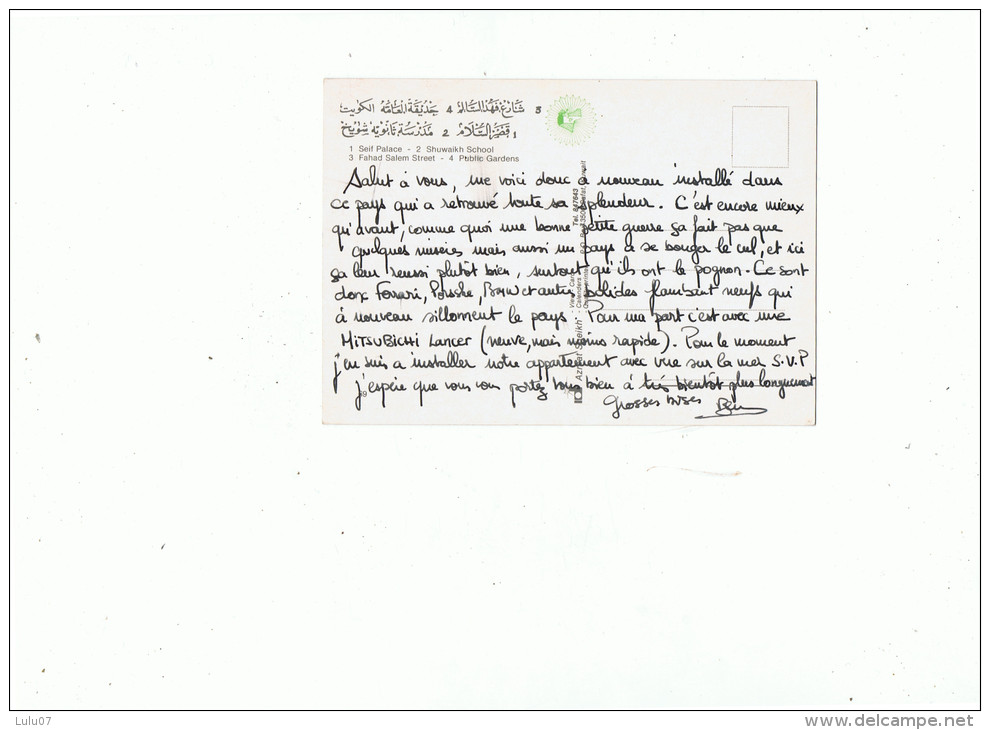 3 شارع فهد السالم 4 حديقة العامه الكويت
1 قصر السلام 2 مدرسة ثانويه شويخ
1 Seif Palace - 2 Shuwaikh School
3 Fahad Salem Street - 4 Public Gardens
Salut à vous, me voici donc à nouveau installé dans
ce pays qui a retrouvé toute sa splendeur. C'est encore mieux
qu'avant, comme quoi une bonne petite guerre ça fait pas que
quelques misères mais aussi un pays à se bouger le cul, et ici
ça leur reussi plutôt bien, surtout qu'ils ont le pognon. Ce sont
donc Ferrari, Porsche, BMW et autres bolides flambant neufs qui
à nouveau sillonnent le pays. Pour ma part c'est avec une
MITSUBICHI Lancer (neuve, mais moins rapide). Pour le moment
j'en suis a installer notre appartement avec vue sur la mer S.V.P
j'espère que vous vous portez tous bien à très bientôt plus longuement
Grosses bises Ben
Azmat Sheikh
View Cards
Calenders
Tel. 847643
Lulu07
www.delcampe.net